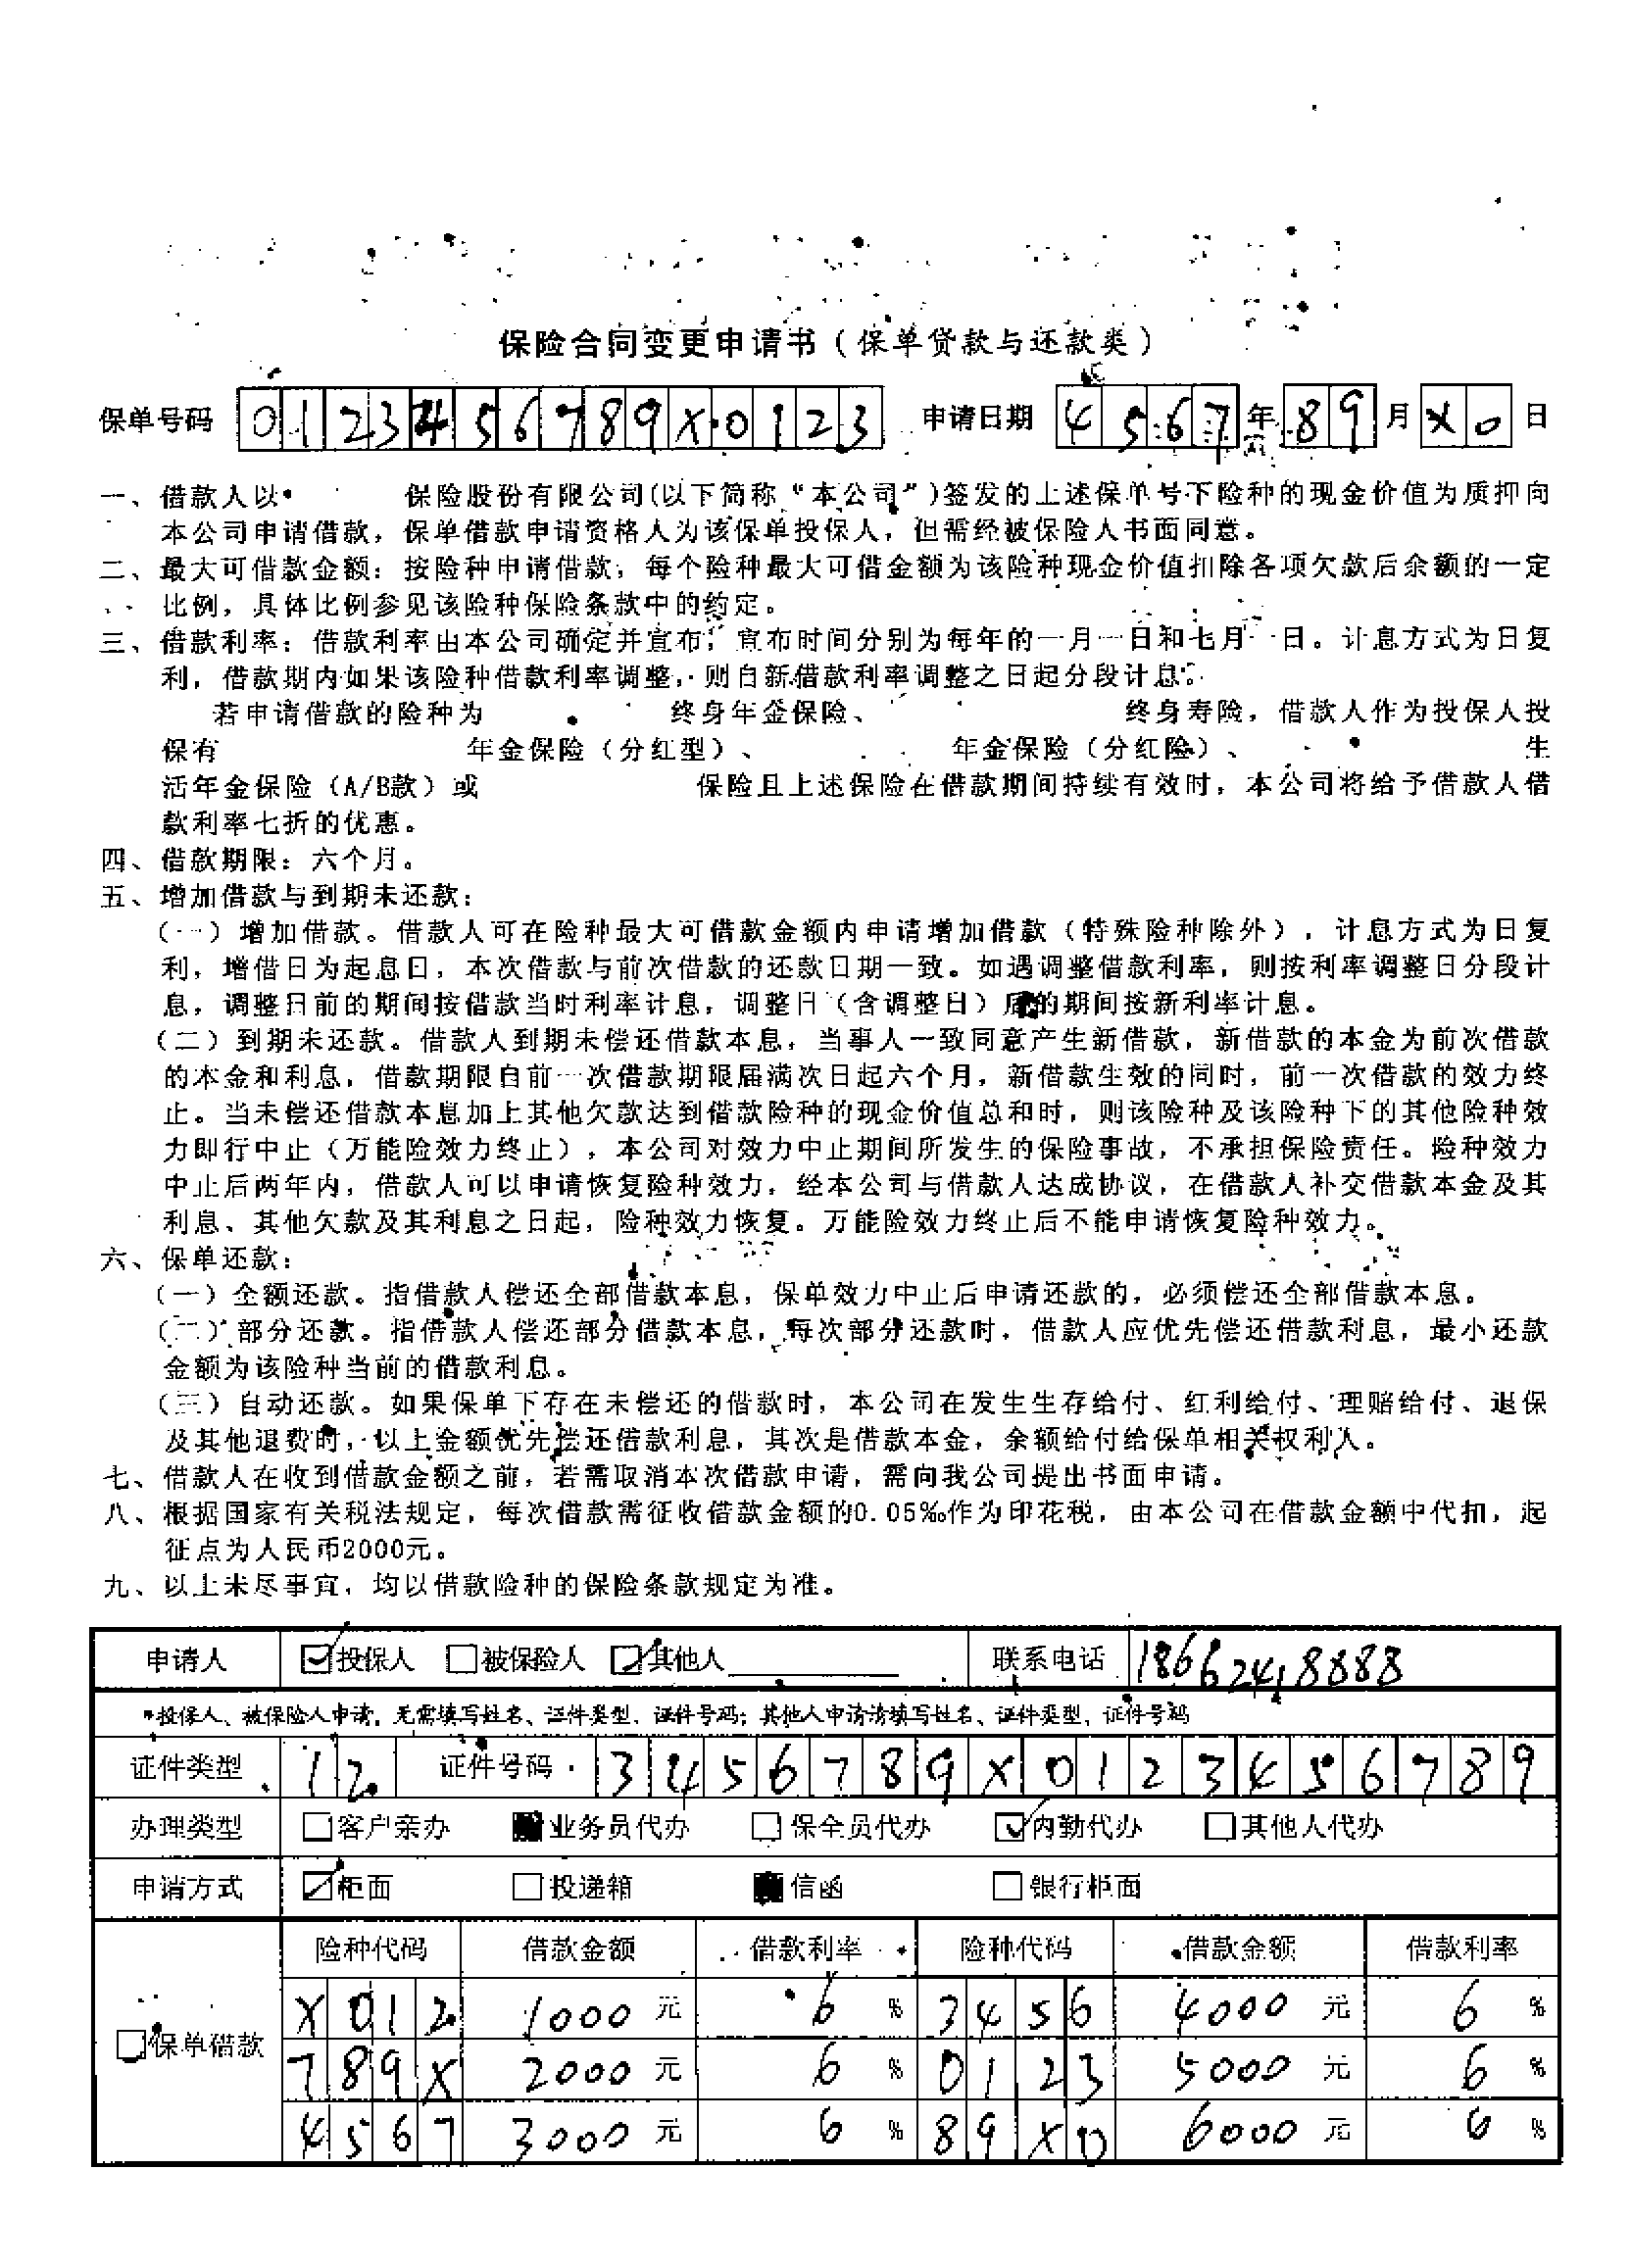 保险合同变更申请书（保单贷款与还款类）
保单号码 0123456789X0123 申请日期 4567年89月X0日
一、借款人以 保险股份有限公司(以下简称“本公司”)签发的上述保单号下险种的现金价值为质押向
本公司申请借款，保单借款申请资格人为该保单投保人，但需经被保险人书面同意。
二、最大可借款金额：按险种申请借款，每个险种最大可借金额为该险种现金价值扣除各项欠款后余额的一定
比例，具体比例参见该险种保险条款中的约定。
三、借款利率：借款利率由本公司确定并宣布，宣布时间分别为每年的一月一日和七月一日。计息方式为日复
利，借款期内如果该险种借款利率调整，则自新借款利率调整之日起分段计息。
若申请借款的险种为 终身年金保险、 终身寿险，借款人作为投保人投
保有 年金保险（分红型）、 年金保险（分红险）、 生
活年金保险（A/B款）或 保险且上述保险在借款期间持续有效时，本公司将给予借款人借
款利率七折的优惠。
四、借款期限：六个月。
五、增加借款与到期未还款：
（一）增加借款。借款人可在险种最大可借款金额内申请增加借款（特殊险种除外），计息方式为日复
利，增借日为起息日，本次借款与前次借款的还款日期一致。如遇调整借款利率，则按利率调整日分段计
息，调整日前的期间按借款当时利率计息，调整日（含调整日）后的期间按新利率计息。
（二）到期未还款。借款人到期未偿还借款本息，当事人一致同意产生新借款，新借款的本金为前次借款
的本金和利息，借款期限自前一次借款期限届满次日起六个月，新借款生效的同时，前一次借款的效力终
止。当未偿还借款本息加上其他欠款达到借款险种的现金价值总和时，则该险种及该险种下的其他险种效
力即行中止（万能险效力终止），本公司对效力中止期间所发生的保险事故，不承担保险责任。险种效力
中止后两年内，借款人可以申请恢复险种效力，经本公司与借款人达成协议，在借款人补交借款本金及其
利息、其他欠款及其利息之日起，险种效力恢复。万能险效力终止后不能申请恢复险种效力。
六、保单还款：
（一）全额还款。指借款人偿还全部借款本息，保单效力中止后申请还款的，必须偿还全部借款本息。
（二）部分还款。指借款人偿还部分借款本息，每次部分还款时，借款人应优先偿还借款利息，最小还款
金额为该险种当前的借款利息。
（三）自动还款。如果保单下存在未偿还的借款时，本公司在发生生存给付、红利给付、理赔给付、退保
及其他退费时，以上金额优先偿还借款利息，其次是借款本金，余额给付给保单相关权利人。
七、借款人在收到借款金额之前，若需取消本次借款申请，需向我公司提出书面申请。
八、根据国家有关税法规定，每次借款需征收借款金额的0.05‰作为印花税，由本公司在借款金额中代扣，起
征点为人民币2000元。
九、以上未尽事宜，均以借款险种的保险条款规定为准。
申请人 ☑投保人 □被保险人 ☑其他人 联系电话 18662418888
投保人、被保险人申请，无需填写姓名、证件类型、证件号码；其他人申请请填写姓名、证件类型、证件号码
证件类型 12 证件号码 3456789X0123456789
办理类型 □客户亲办 ■业务员代办 □保全员代办 ☑内勤代办 □其他人代办
申请方式 ☑柜面 □投递箱 ■信函 □银行柜面
险种代码 借款金额 借款利率 险种代码 借款金额 借款利率
X012 1000元 6% 3456 4000元 6%
□保单借款 789X 2000元 6% 0123 5000元 6%
4567 3000元 6% 89X0 6000元 6%